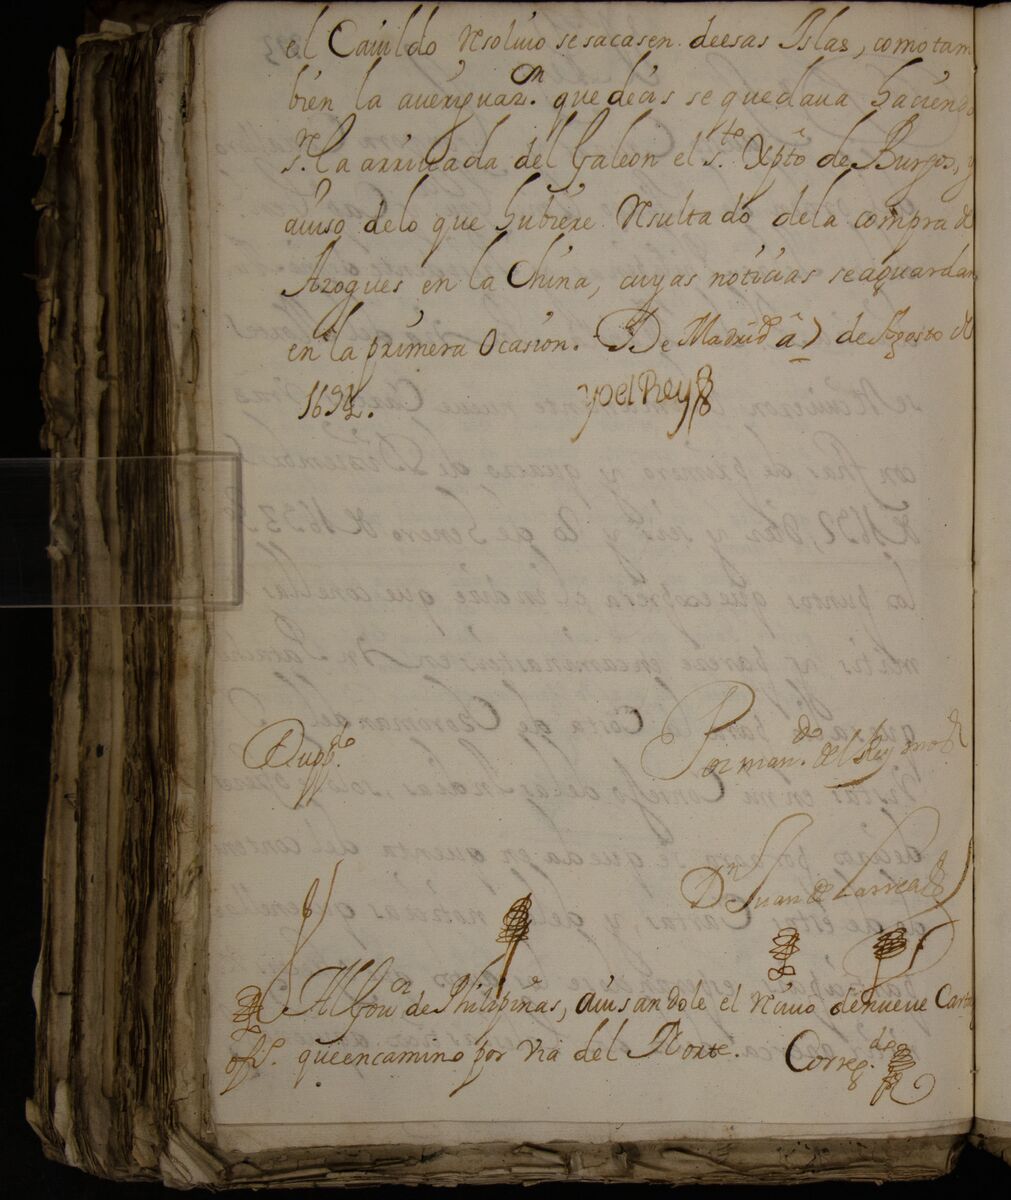 el Cavildo Resolvio se sacasen. deesas Islas, como tam
bien la averiguaz.on que decis se quedava haciendo
s.re la arrivada del Galeon el s.to Xpto de Burgos, y
aviso delo que hubiere Resultado dela compra de
Azogues en la China, cuyas noticias se aguardan
en la primera ocasion. De Madrid à 7 de Agosto de
1694.
yo el Rey
Dupp.do
Por man.do del Rey nro s.r
D.n Juan de Larrea
Al Gov.or de Philipinas, avisandole el Recivo de nueve Cartas
ofi.o que encamino por via del Norte.
Correg.do